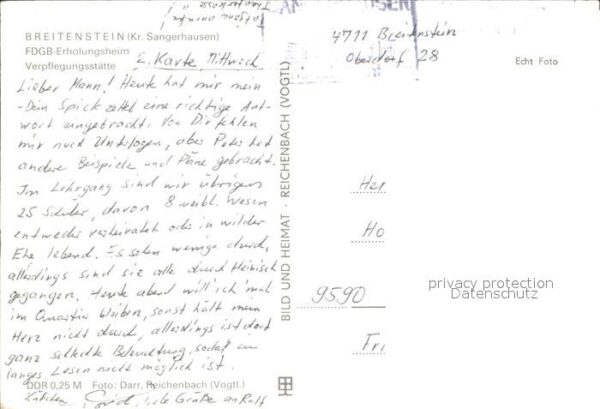 BREITENSTEIN (Kr. Sangerhausen)
FDGB-Erholungsheim
Verpflegungsstätte
2. Karte, Mittwoch
Lieber Mann! Heute hat mir mein
Dein Spickzettel eine richtige Ant-
wort eingebracht. Von Dir fehlen
mir noch Unkel, aber Peter hat
andere Beispiele und Pläne gebracht.
Im Lehrgang sind wir übrigens
25 Schüler, davon 8 weibl. Wesen
entweder verheiratet oder in wilder
Ehe lebend. Es sehen wenige durch,
allerdings sind sie alle durch
gegangen. Heute abend will ich mal
im Quartier bleiben, sonst hält mein
Herz nicht durch, allerdings ist dort
ganz schlechte Beleuchtung, sodaß ein
langes Lesen nicht möglich ist.
DDR 0,25 M Foto: Darr, Reichenbach (Vogtl.)
liebe Grüße an Ralf
BILD UND HEIMAT · REICHENBACH (VOGTL)
4711 Breitenstein
Oberdorf 28
Echt Foto
Her
Ho
9590
Fri
privacy protection
Datenschutz